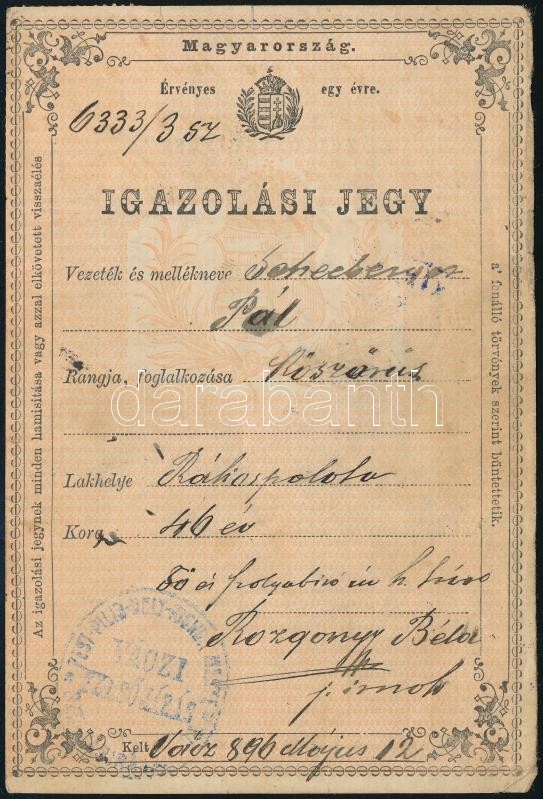 Magyarország.
Érvényes egy évre.
6333/3 sz
IGAZOLÁSI JEGY
Vezeték és mellékneve
Pál
Rangja, foglalkozása Köszörüs
Lakhelye Rákospalota
Kora 46 év
Rozgonyi Béla
Kelt Vácz 896 Május 12
Az igazolási jegynek minden hamisítása vagy azzal elkövetett visszaélés
a' fenálló törvények szerint büntettetik.
VÁCZI
darabanth